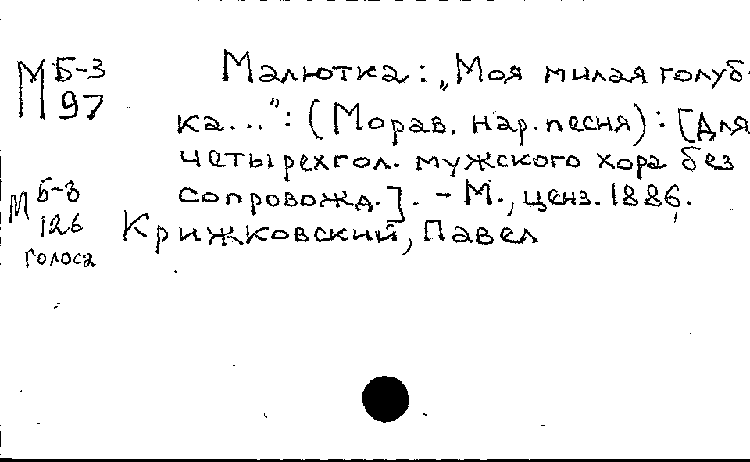 М Б-3
97
Малютка: „Моя милая голуб-
ка...“: (Морав. нар. песня): [Для
четырехгол. мужского хора без
сопровожд.]. - М., ценз. 1886.
М Б-3
126
голоса
Крижковский, Павел